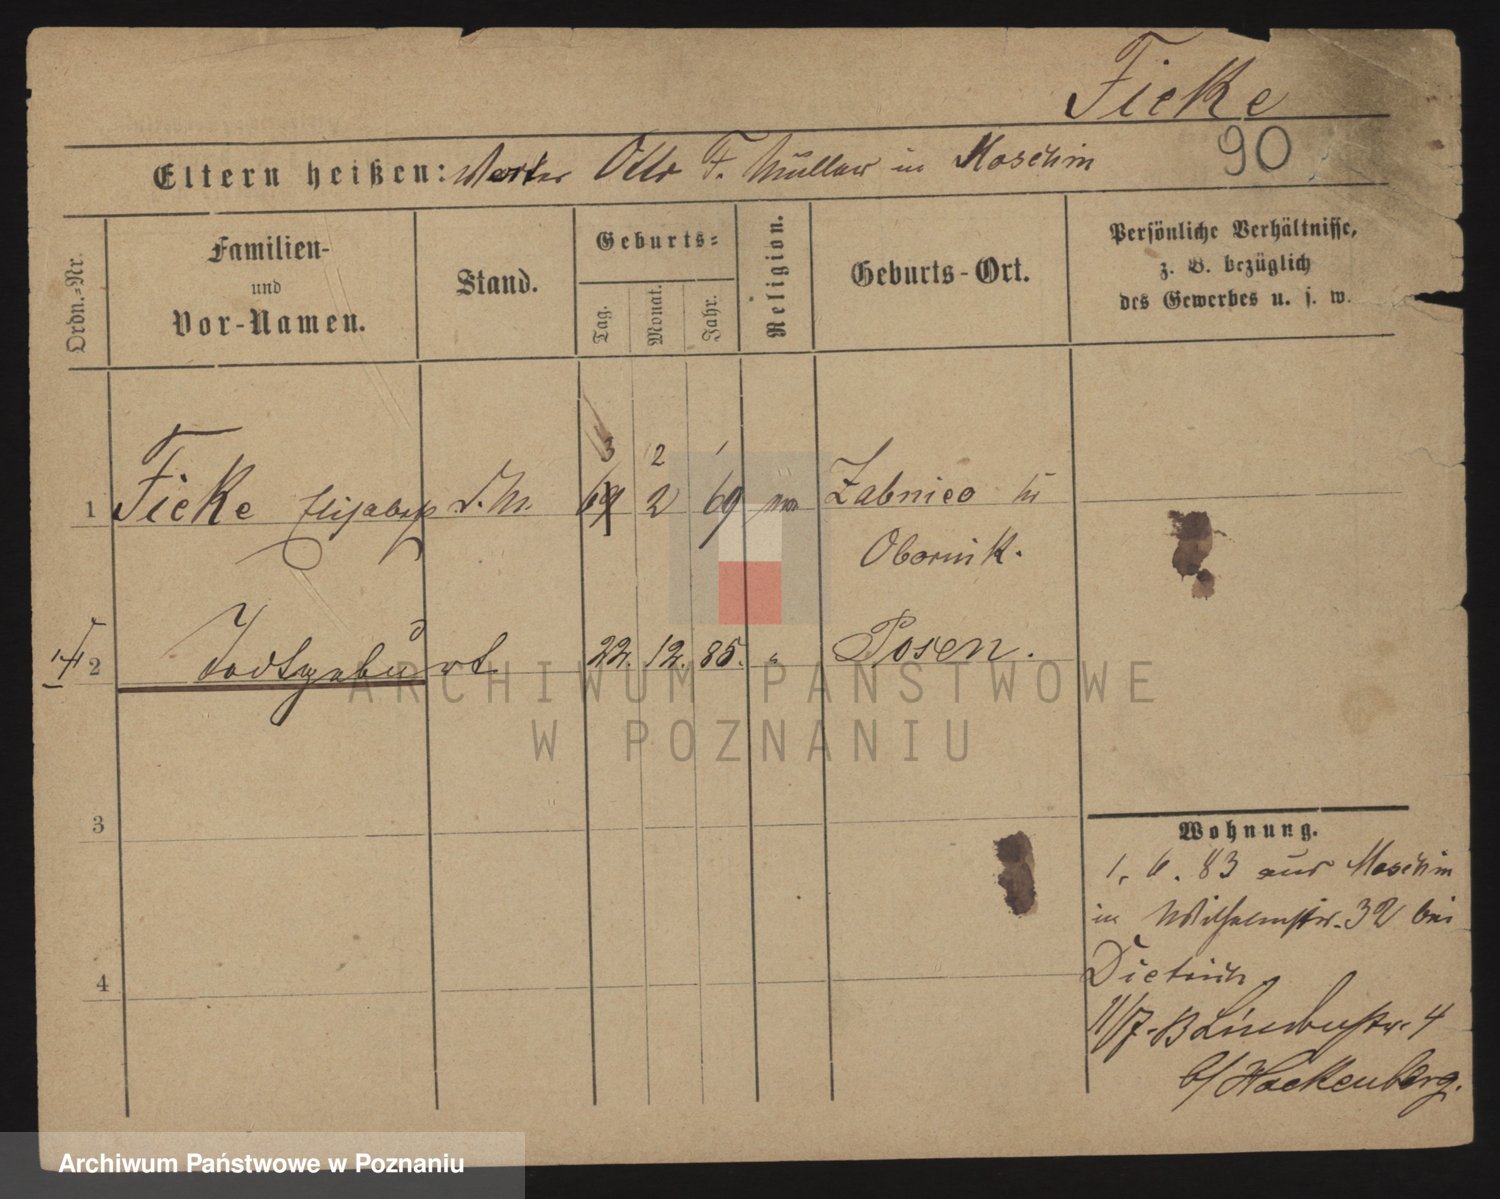 Ficke
90
Eltern heißen: Otto F. in Moschin
Ordn.-Nr.
Familien-
und
Vor-Namen.
Stand.
Geburts-
Tag.
Monat.
Jahr.
Religion.
Geburts-Ort.
Persönliche Verhältnisse,
z. B. bezüglich
des Gewerbes u. s. w.
3 2
1 Ficke Elisabeth d. M. 69 2 69 Kr
Obornik.
2 Todtgeburt 22. 12. 85. " Posen.
3
4
Wohnung.
1. 6. 83 aus Moschin
in Wilhelmstr. 32 bei
Dietrich
11/7. 4
b/ Hackenberg.
ARCHIWUM PAŃSTWOWE
W POZNANIU
Archiwum Państwowe w Poznaniu